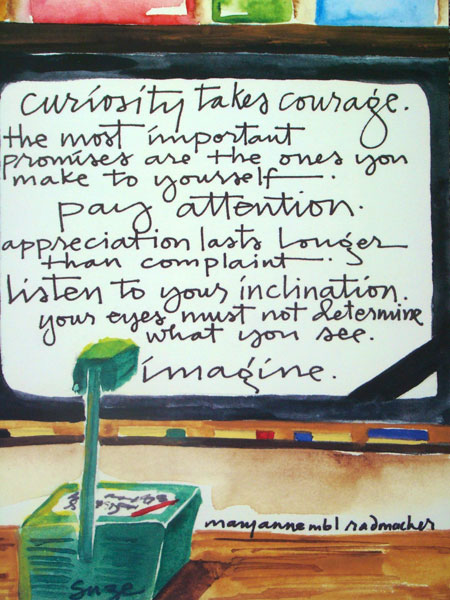 curiosity takes courage.
the most important
promises are the ones you
make to yourself.
pay attention.
appreciation lasts longer
than complaint.
listen to your inclination.
your eyes must not determine
what you see.
imagine.
maryanne mbl radmacher
Suze